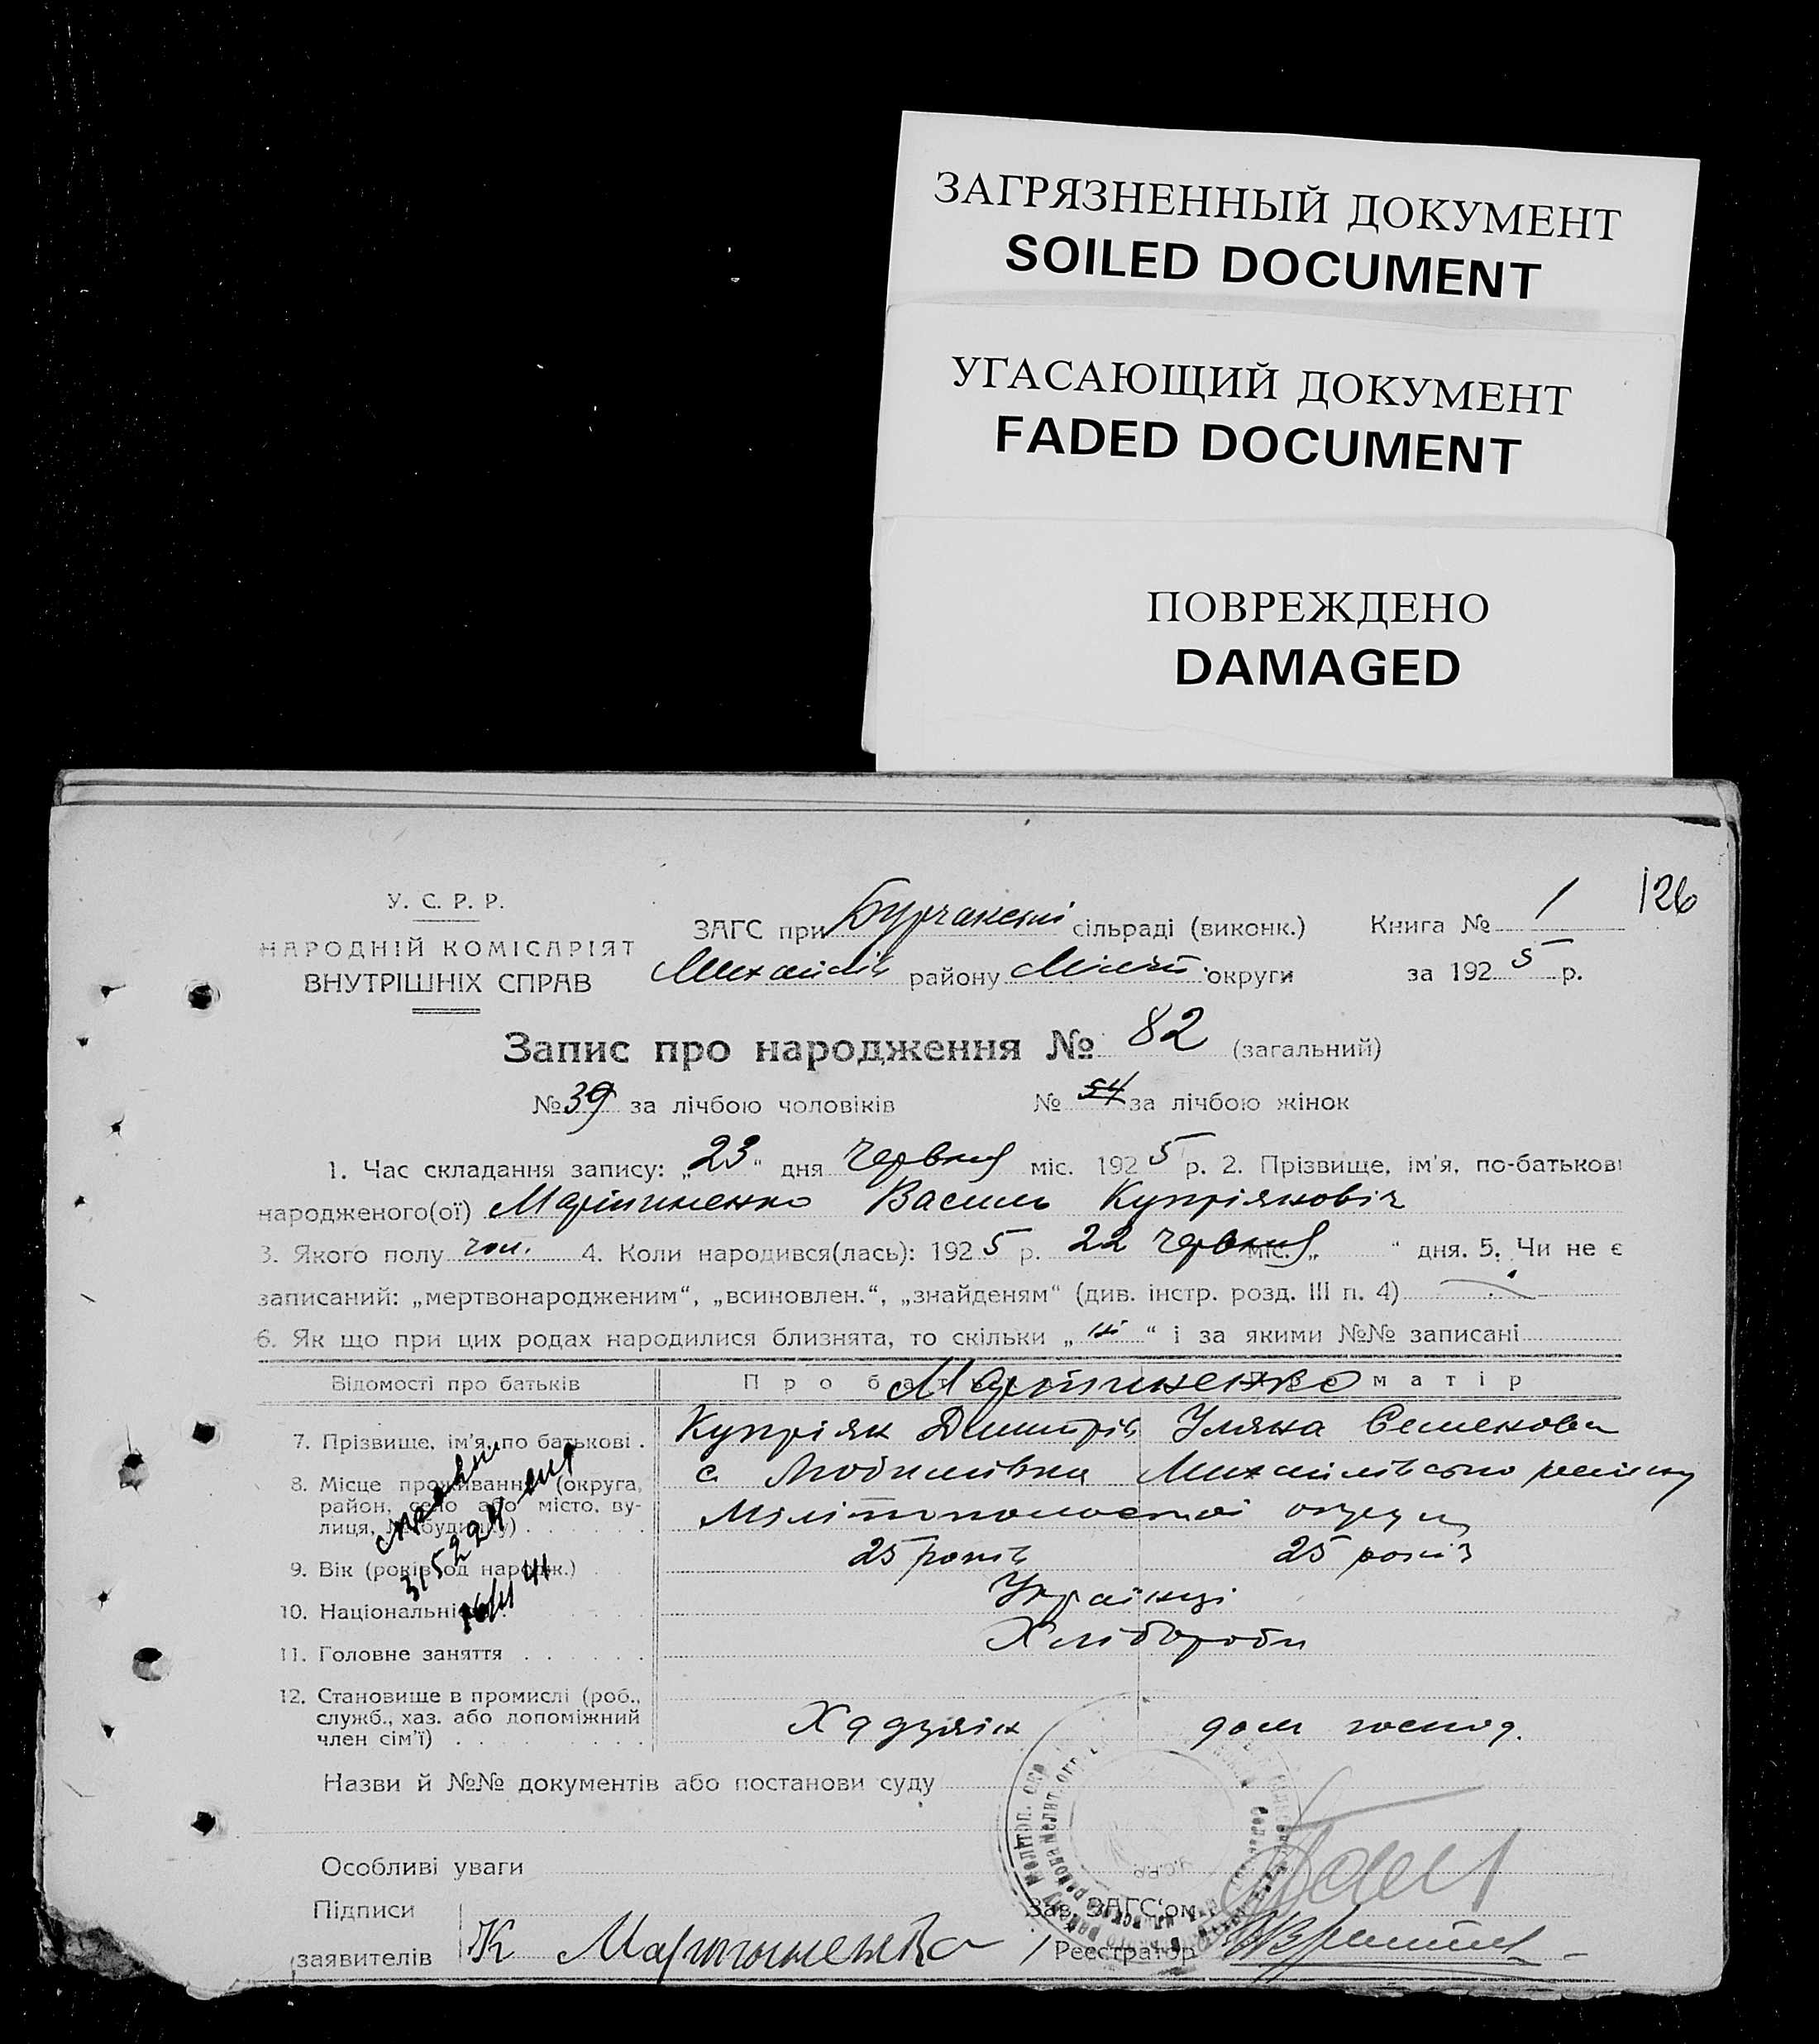 ЗАГРЯЗНЕННЫЙ ДОКУМЕНТ
SOILED DOCUMENT
УГАСАЮЩИЙ ДОКУМЕНТ
FADED DOCUMENT
ПОВРЕЖДЕНО
DAMAGED
126
У. С. Р. Р.
НАРОДНІЙ КОМІСАРІЯТ
ВНУТРІШНІХ СПРАВ
ЗАГС при Бурчакскій сільраді (виконк.) Книга № 1
Михайлів району Меліт. округи за 1925 р.
Запис про народження № 82 (загальний)
№ 39 за лічбою чоловіків № 54 за лічбою жінок
1. Час складання запису: „23“ дня червня міс. 1925 р. 2. Прізвище, ім'я, по-батькові
народженого(ої) Мартиненко Василь Купріянович
3. Якого полу чол. 4. Коли народився(лась): 1925 р. 22 червня міс. „ “ дня. 5. Чи не є
записаний: „мертвонародженим“, „всиновлен.“, „знайденям“ (див. інстр. розд. III п. 4)
6. Як що при цих родах народилися близнята, то скільки „ “ і за якими №№ записані
Відомості про батьків Про батька Про матір
Мартиненко
7. Прізвище, ім'я, по батькові . Купріян Дмитрів Уляна Семенова
8. Місце проживання (округа, район, село або місто, вулиця, № будинку) с Любимівка Михайлівського району
Мелітопольської округи
9. Вік (років од народж.) 25 років 25 років
10. Національність Українці
11. Головне заняття Хлібороби
12. Становище в промислі (роб., служб., хаз. або допоміжний член сім'ї) Хадзяїн дом господ.
Назви й №№ документів або постанови суду
Особливі уваги
Підписи
Зав. ЗАГС'ом
заявителів К Мартиненко Реєстратор